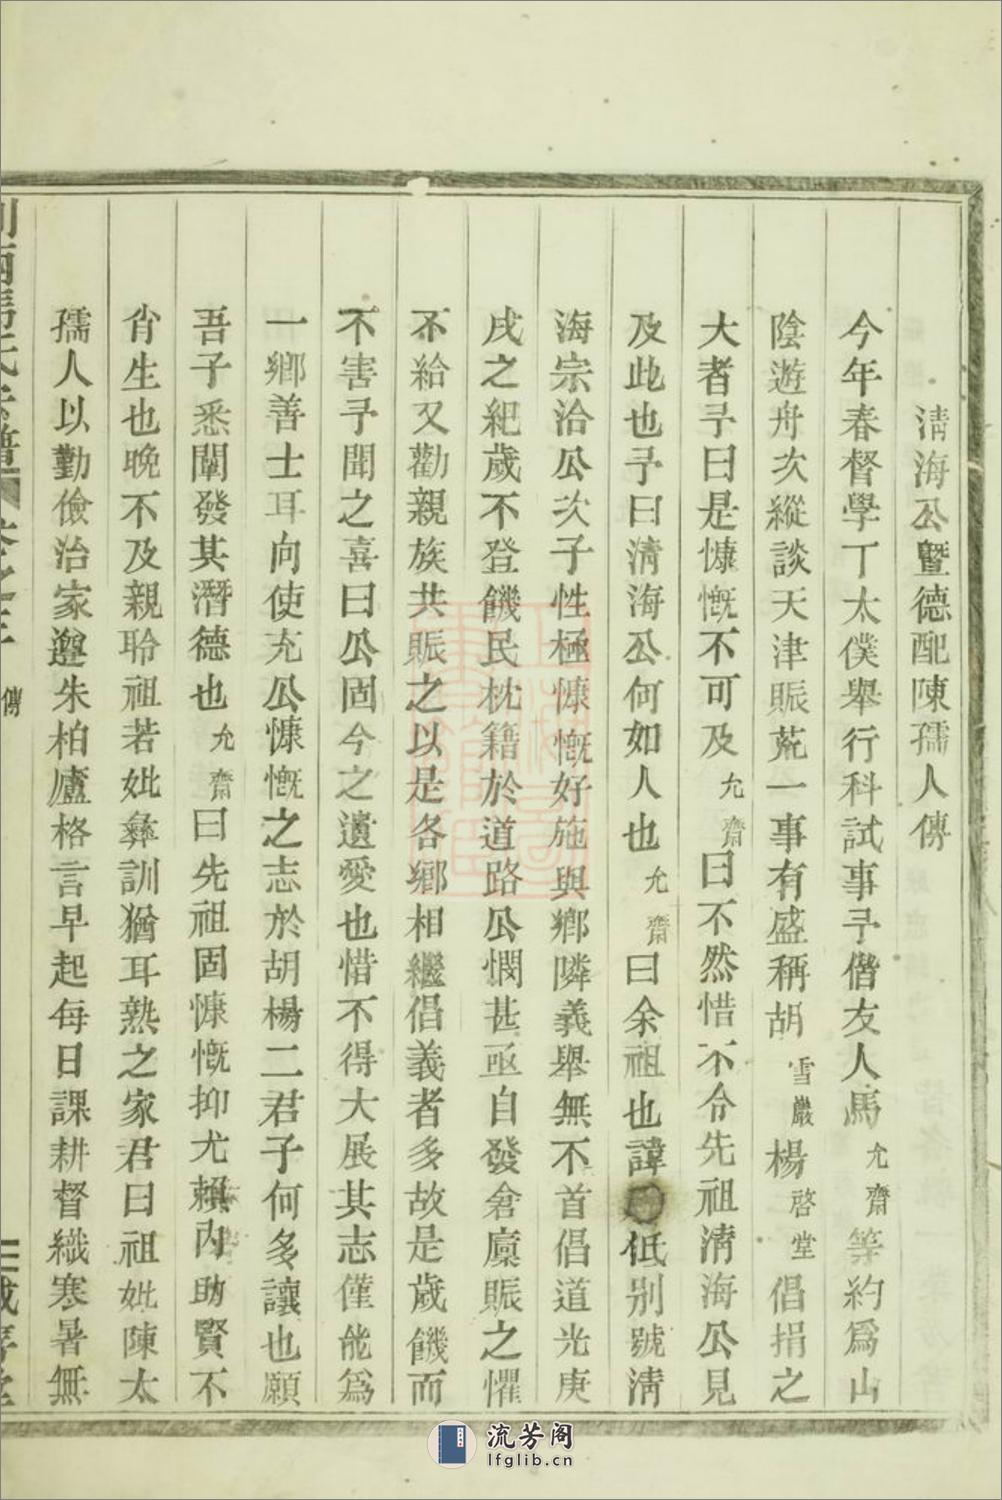 清海公暨德配陳孺人傳
今年春督學丁太僕舉行科試事予偕友人馬允齋等約為山
陰遊舟次縱談天津賑荒一事有盛稱胡雪巖楊啓堂倡捐之
大者予曰是慷慨不可及允齋曰不然惜不令先祖清海公見
及此也予曰清海公何如人也允齋曰余祖也諱低别號清
海宗洽公次子性極慷慨好施與鄉隣義舉無不首倡道光庚
戌之紀歲不登饑民枕籍於道路公憫甚亟自發倉廩賑之懼
不給又勸親族共賑之以是各鄉相繼倡義者多故是歲饑而
不害予聞之喜曰公固今之遺愛也惜不得大展其志僅能為
一鄉善士耳向使充公慷慨之志於胡楊二君子何多讓也願
吾子悉闡發其潛德也允齋曰先祖固慷慨抑尤賴內助賢不
肖生也晚不及親聆祖若妣彝訓猶耳熟之家君曰祖妣陳太
孺人以勤儉治家遵朱柏廬格言早起每日課耕督織寒暑無
氏 譜 卷之 傳
流芳阁
lfglib.cn